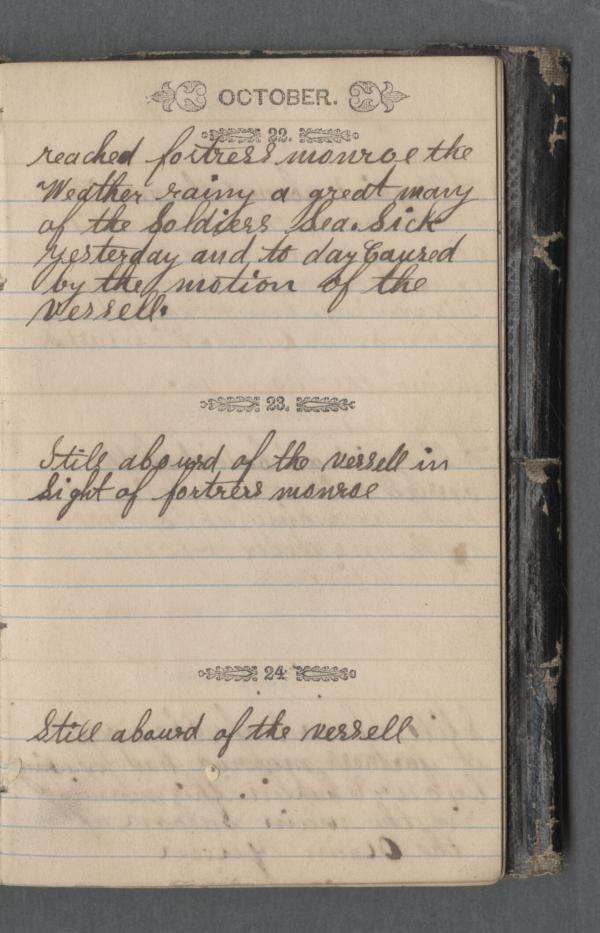 OCTOBER.
22.
reached fortress monroe the
Weather rainy a great many
of the Soldiers Sea. Sick
yesterday and to day Caused
by the motion of the
Vessell.
23.
Still abourd of the vessell in
Sight of fortress monroe
24
Still abourd of the vessell